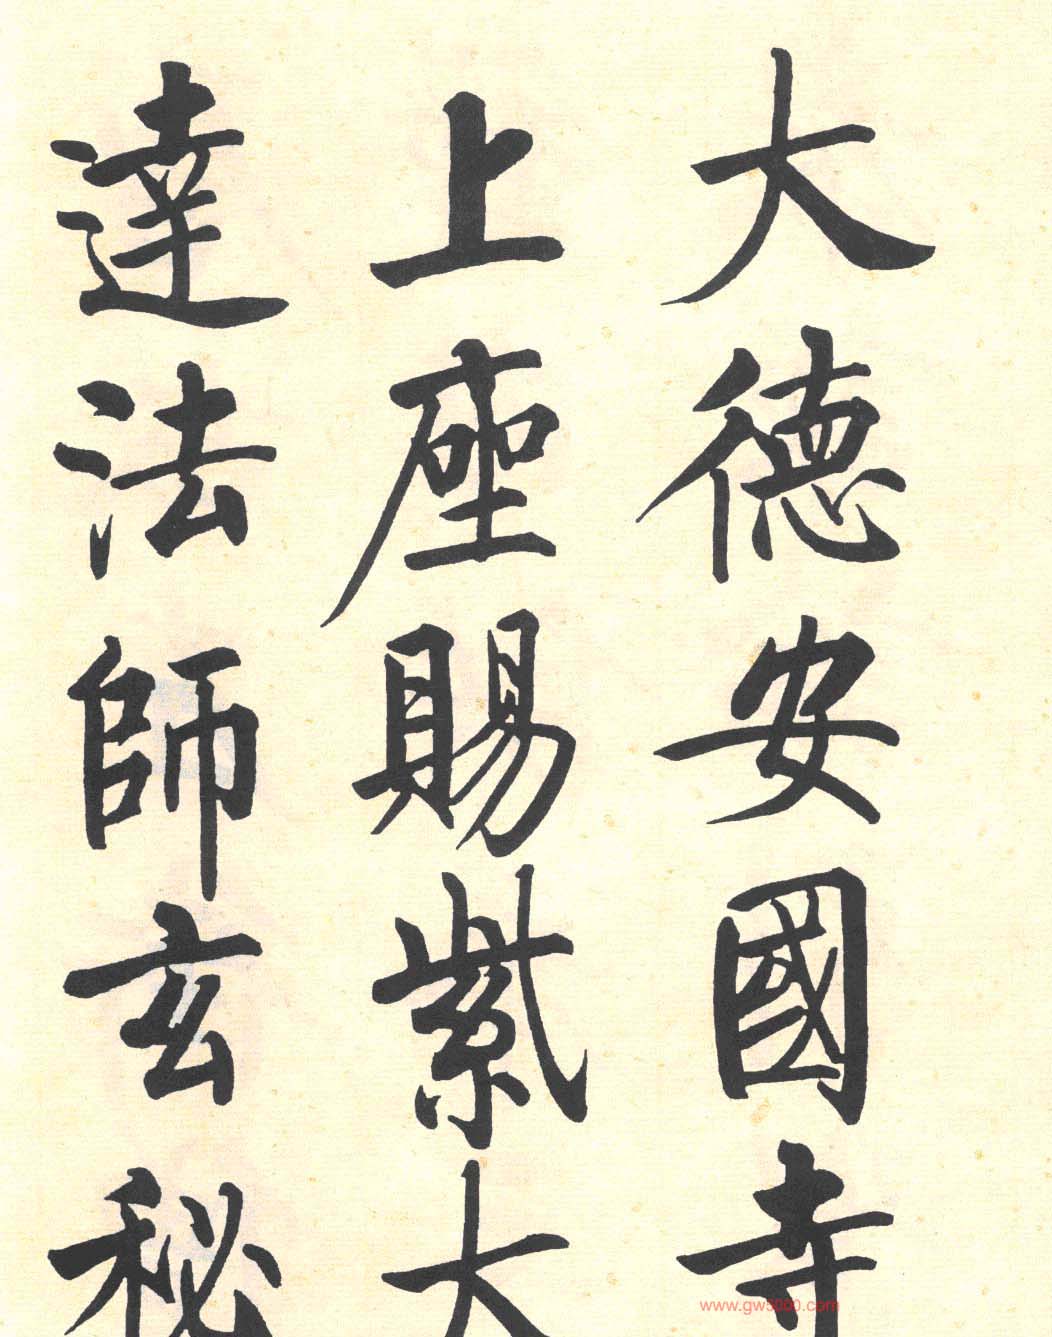 大德安國寺
上座賜紫大
達法師玄秘
www.gw5000.com